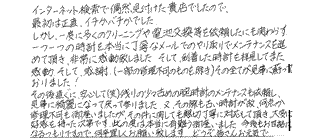 インターネット検索で偶然見付けた貴店でしたので、
最初は正直、イチかバチかでした
しかし、一度に多くのクリーニングや電池交換等を依頼したにも関わらず
一つ一つの時計を本当に丁寧なメールでのやり取りでメンテナンスを進
めて頂き、非常に感動致しました そして、到着した時計を拝見してまた
感動 そして、感謝！（一部の修理不可のものを除き）その全てが見事に蘇って
おりました！
その後直ぐに、安心して（笑）残りの少々古めの腕時計のメンテナンスも依頼し
見事に綺麗になって戻って参りました 又、その際も古い時計が故、何点か
修理不可も御座いましたが、その件に関しても親切丁寧に対応して頂き、大変
好感を持った次第です 此の度は本当に有難う御座いました 今後もお世話に
なるつもりですので、何卒宜しくお願い致します どうぞ皆さんお元気で